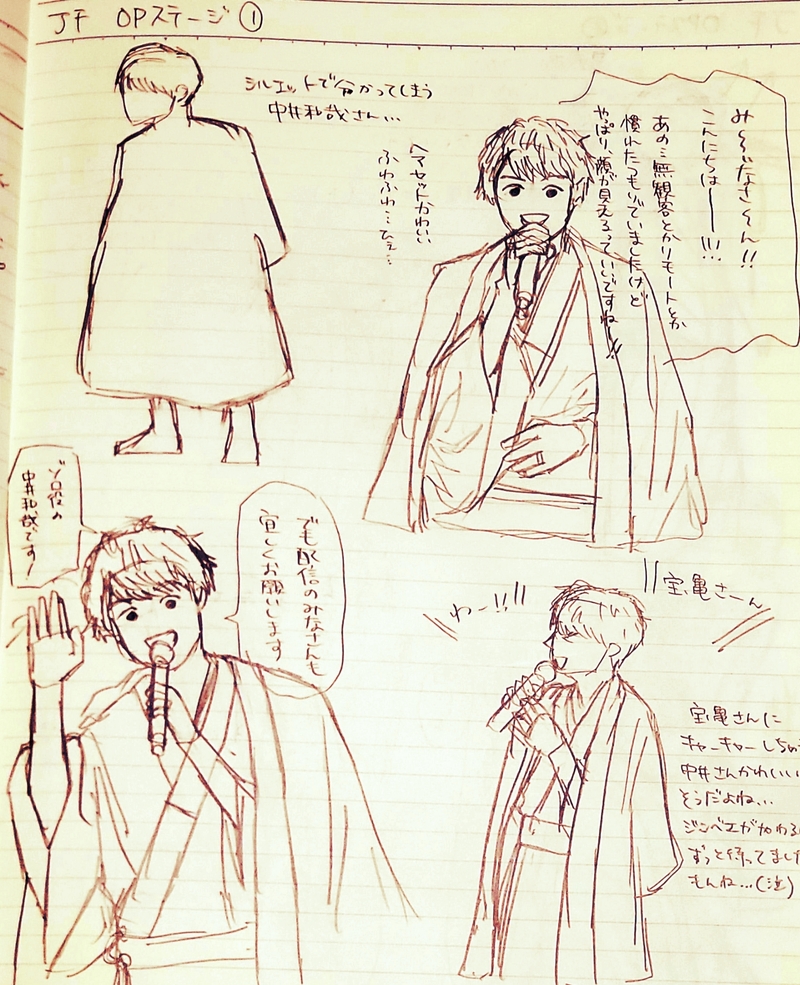 JF OPステージ①
シルエットで分かってしまう
中井和哉さん…
ヘアセットかわいい
ふわふわ…ひぇ…
み〜〜なさ〜ん!!
こんにちはーー!!!
あの…無観客とかリモートとか
慣れたつもりでいましたけど
やっぱり、顔が見えるっていいですね!!
ゾロ役の
中井和哉です!
でも配信のみなさんも
宜しくお願いします
わー!!
宝亀さーん
宝亀さんに
キャーキャーしちゃう
中井さんかわいいい
そうだよね…
ジンベエがかわる
ずっと待ってました
もんね…(泣)